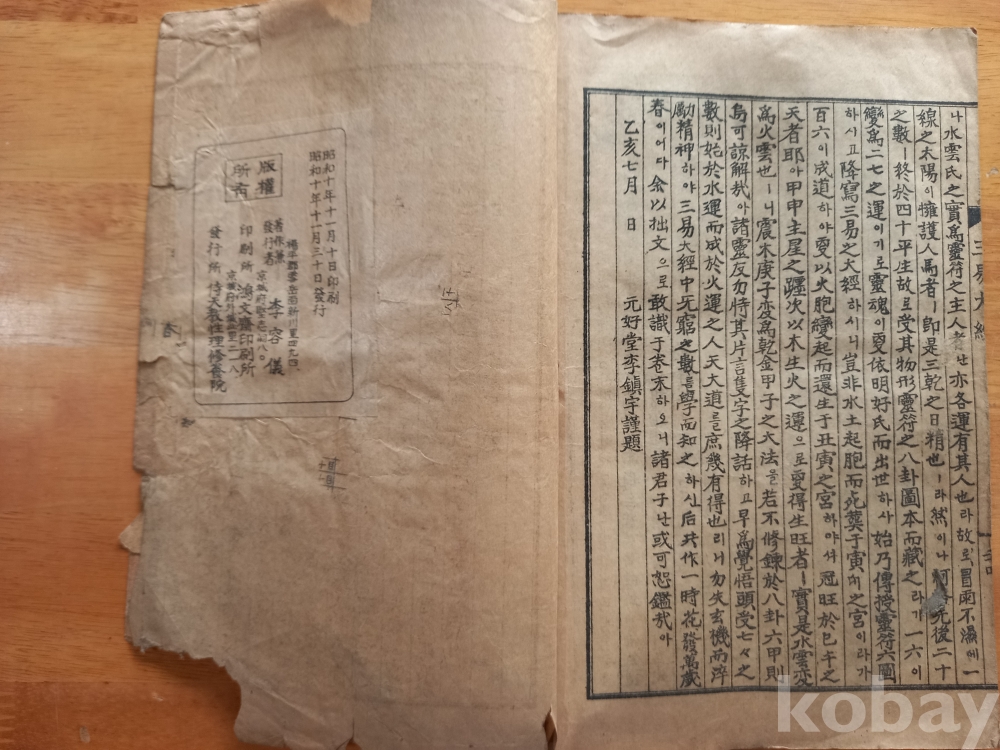 나水雲氏之實爲靈符之主人者난亦各運有其人也라故로冒雨不濕에一
線之太陽이擁護人馬者ㅣ卽是三乾之日精也ㅣ라然이나 先後二十
之數ㅣ終於四十平生故로受其物形靈符之八卦圖本而藏之라가一六이
變爲二七之運이기로靈魂이更依明好氏而出世하사始乃傳授靈符六圖
하시고降寫三易之大經하시니豈非水土起胞而死葬于寅 之宮이라가
百六이成道하야更以火胞變起而還生于丑寅之宮하야셔冠旺於巳午之
天者耶아甲申主星之躔次以木生火之運으로更得生旺者ㅣ實是水雲變
爲火雲也ㅣ니震木庚子變爲乾金甲子之大法을若不修鍊於八卦六甲則
烏可諒解哉아諸靈友勿恃其片言隻字之降話하고早爲覺悟頭受七々之
數則始於水運而成於火運之人天大道를庶幾有得也리니勿失玄機而淬
勵精神하야三易大經中无窮之數를學而知之하신后共作一時花發萬歲
春이어다余以拙文으로敢識于卷末하오니諸君子난或可恕鑑哉아
乙亥七月 日
元好堂李鎭宇謹題
三易大經
昭和十年十一月十日印刷
昭和十年十一月三十日發行
楊平郡雪岳面新川里四九四
著作兼
發行者 李容儀
京城府堅志町八〇
印刷所 鴻文 印刷所
發行所 侍天敎性理修養院
版權
所有
春
kobay